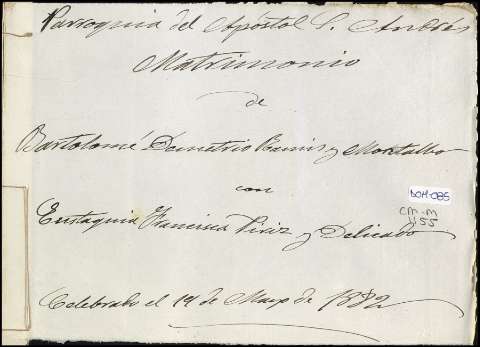 Parroquia del Apóstol S. Andrés
Matrimonio
de
Bartolomé Demetrio Ramis y Montalbo
con
Eustaquia Francisca Piriz y Delicado
DOM-085
CM-M
455
Celebrado el 19 de Mayo de 1882